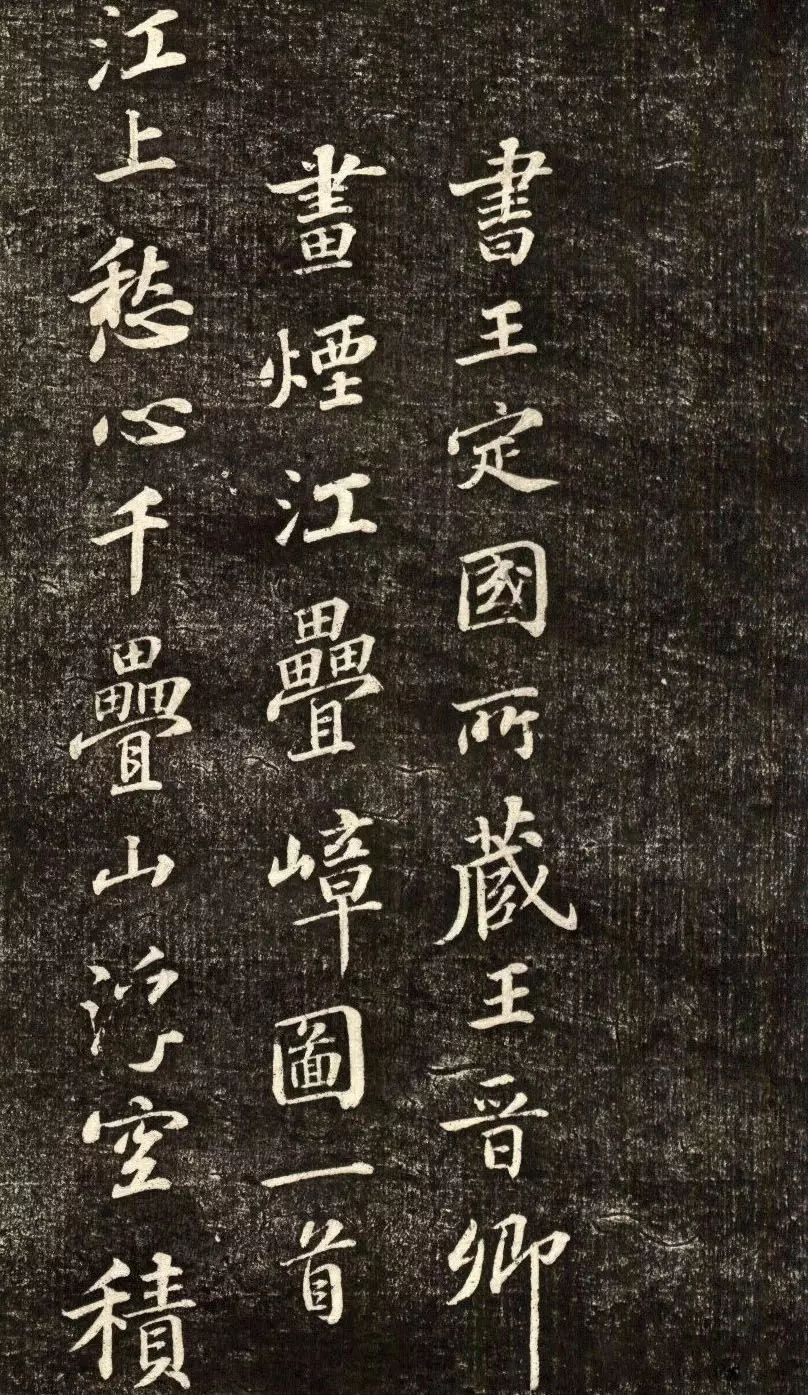 書王定國所藏王晉卿
畫煙江疊嶂圖一首
江上愁心千疊山浮空積